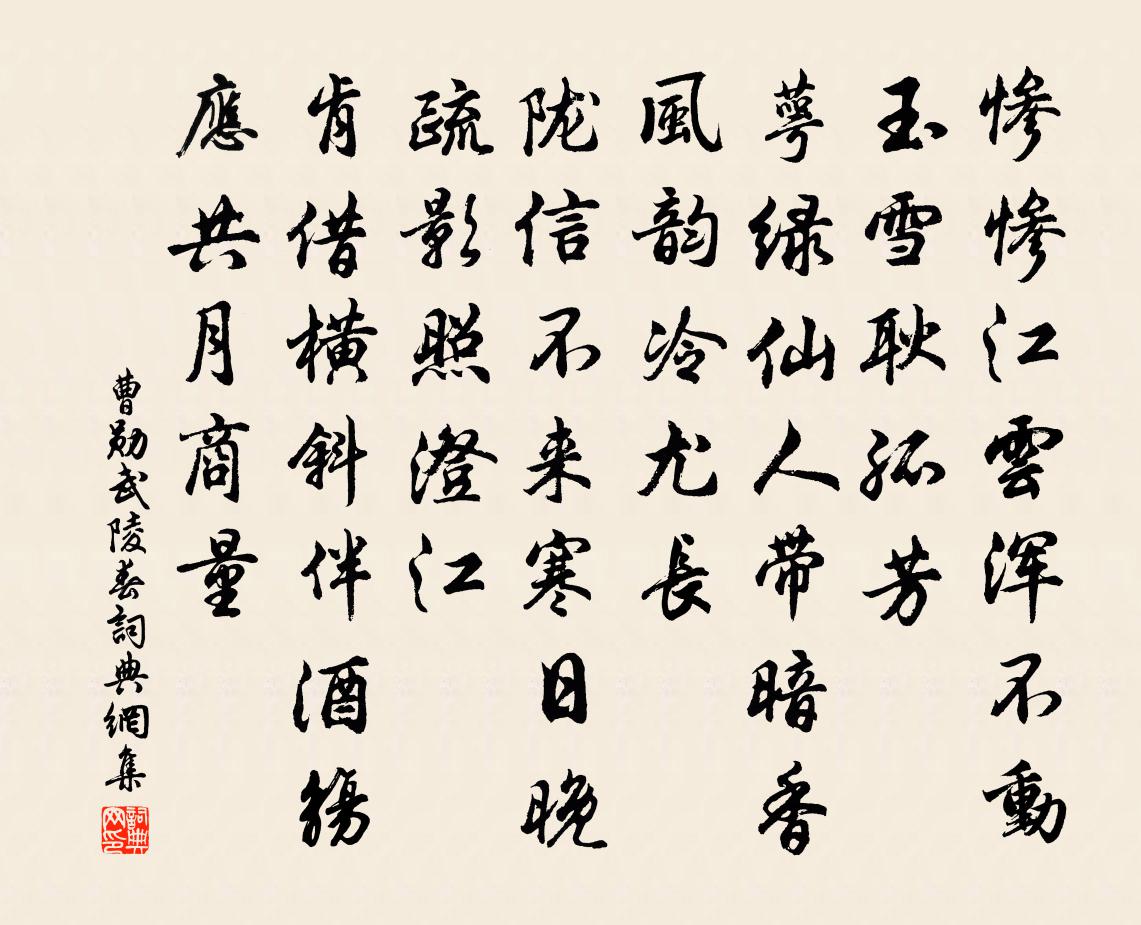 惨惨江雲浑不動
玉雪耿孤芳
萼绿仙人带暗香
風韵冷尤長
陇信不来寒日晚
疏影照澄江
肯借横斜伴酒觞
應共月商量
曹勋武陵春詞典網集
詞典网印